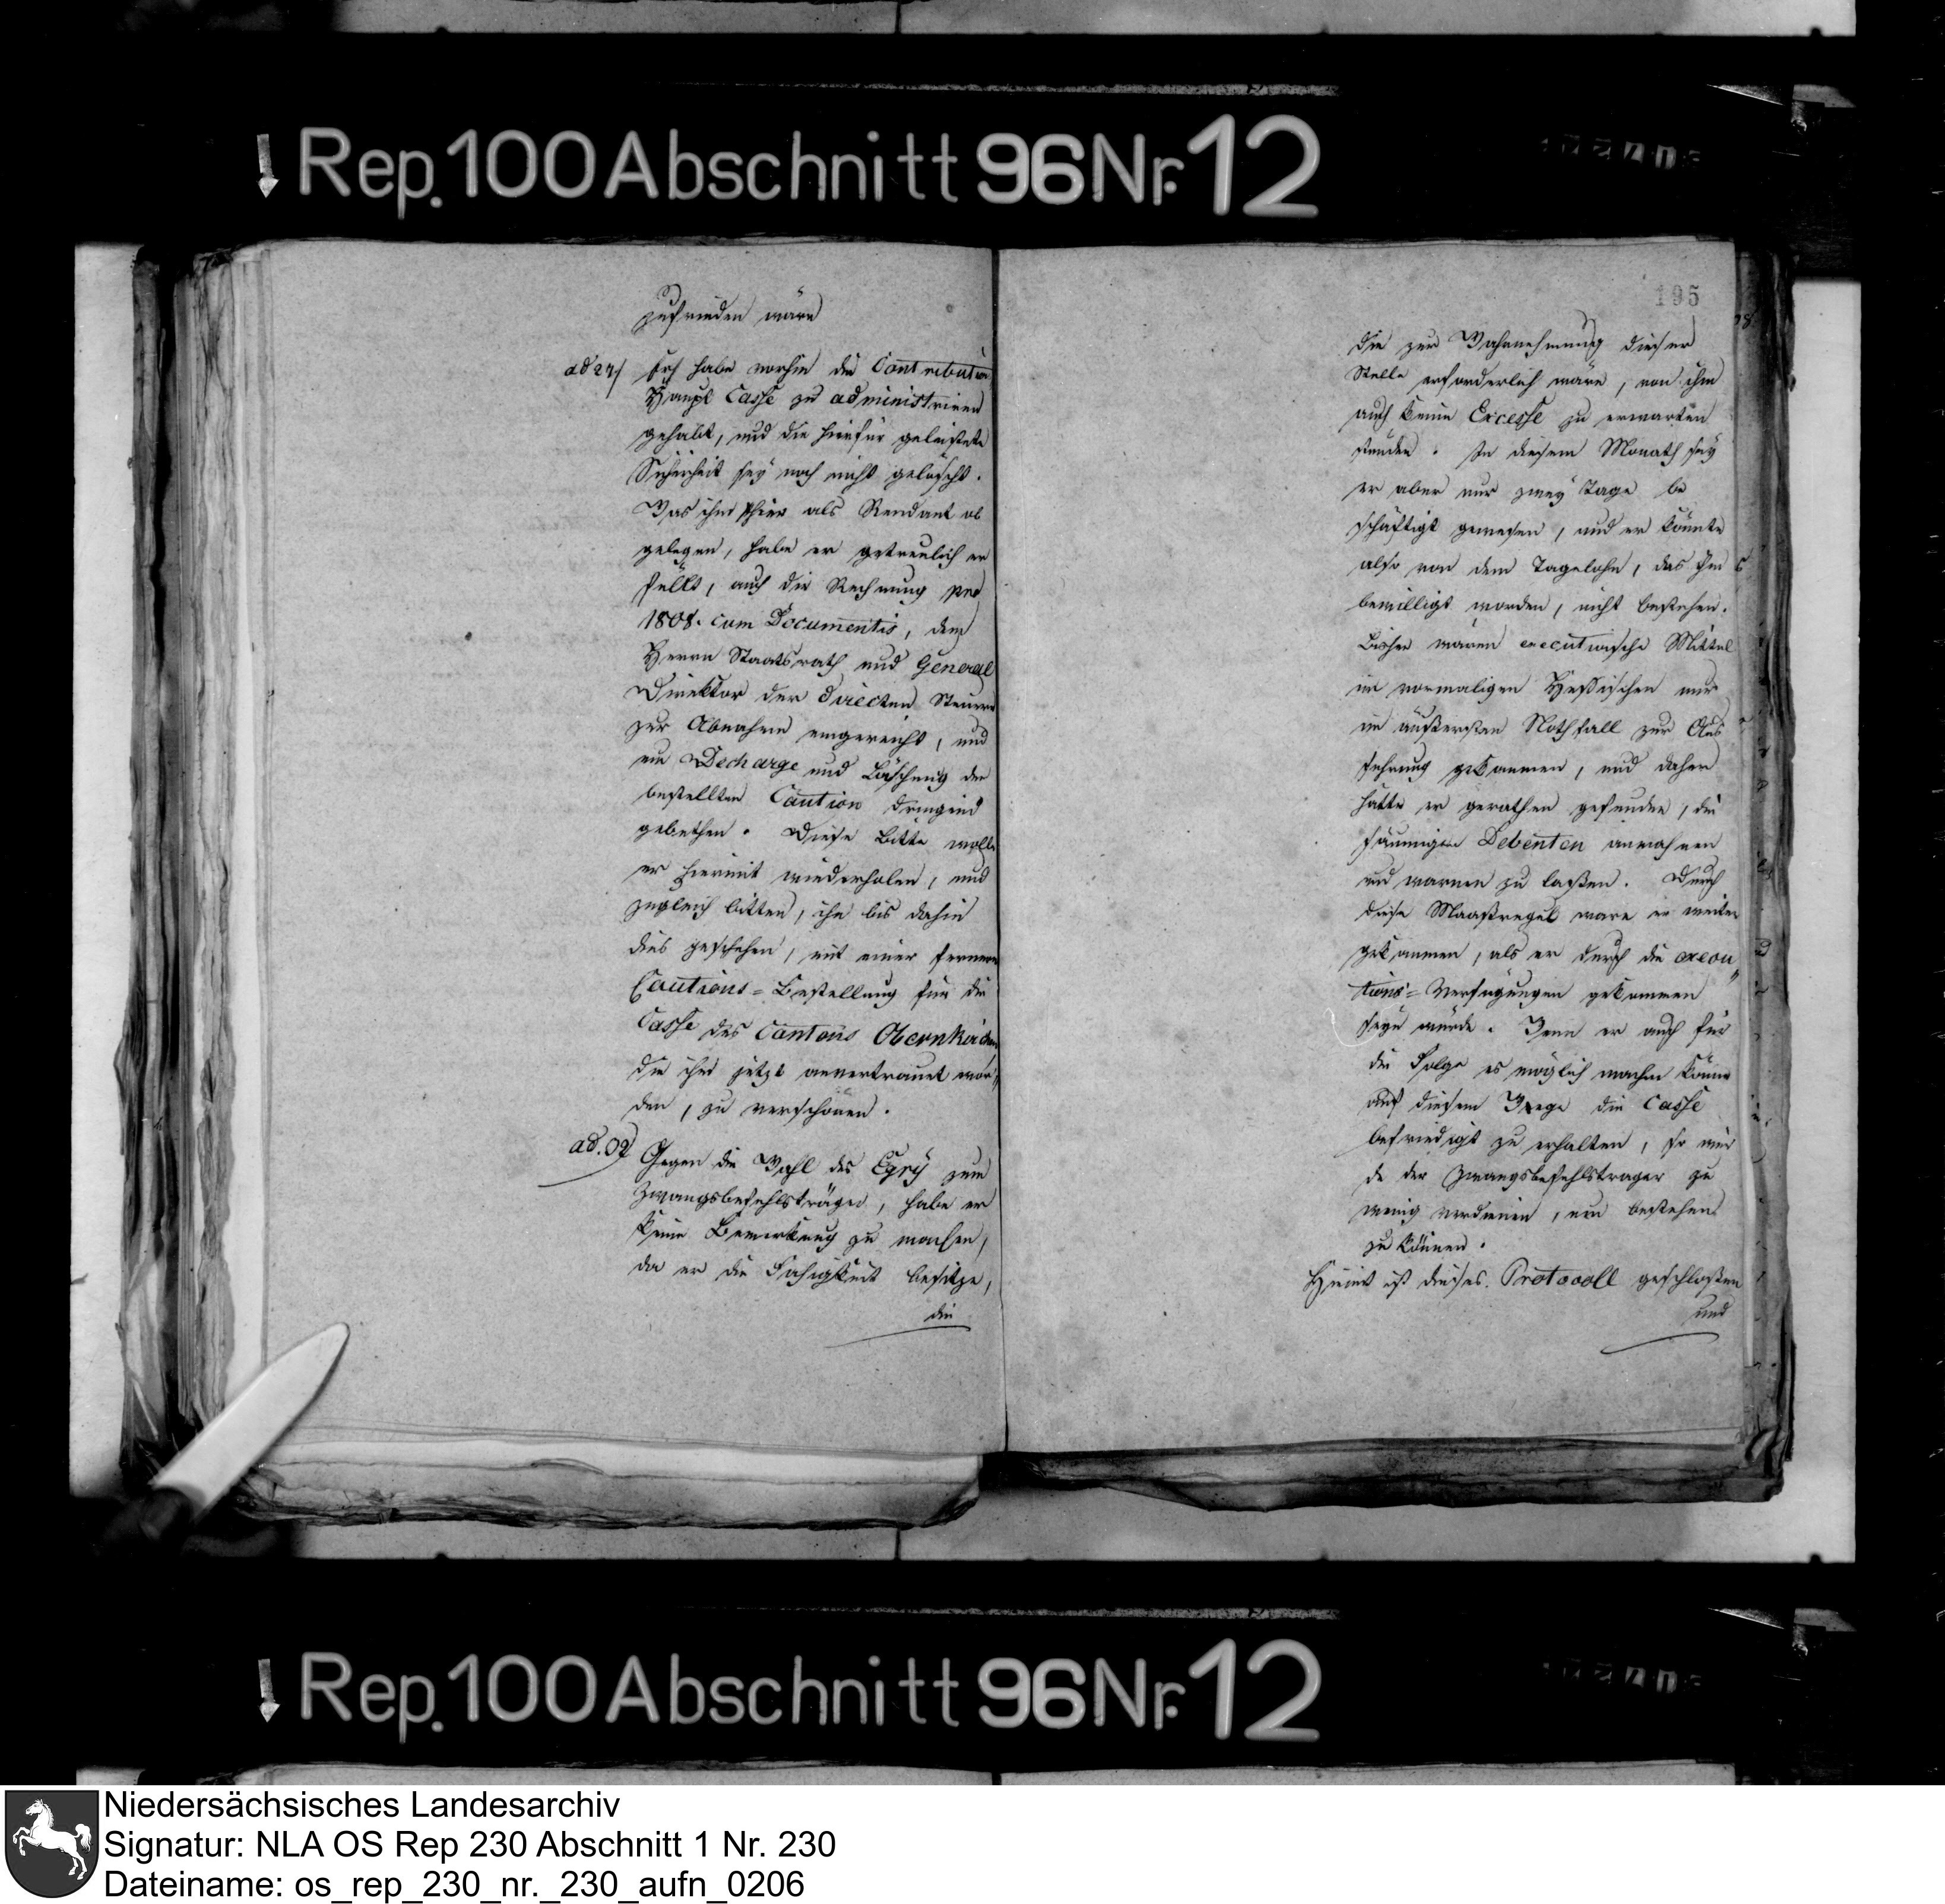 Rep. 100 Abschnitt 96 Nr. 12
zufrieden wäre
ad 27/ Er habe vorhin die Contributions
Haupt Casse zu administriren
gehabt, und die hiefür geleistete
Sicherheit sey noch nicht gelöscht.
Was ihm hier als Rendant ob
gelegen, habe er getreulich er
füllt, auch die Rechnung pro
1808. cum Documentis, dem
Herrn Staatsrath und General
Direktor der directen Steuern
zur Abnahme eingereicht, und
um Decharge und Löschung der
bestellten Caution dringend
gebethen. Diese Bitte wolle
er hiermit wiederholen, und
zugleich bitten, ihn bis dahin
dies geschehen, mit einer fernern
Cautions=Bestellung für die
Casse des Cantons Obernkirchen
die ihm jetzt anvertrauet wor
den, zu verschonen.
ad. 02 Gegen die Wahl des Egry zum
Zwangsbefehlsträger, habe er
keine Bemerkung zu machen,
da er die Fähigkeit besitze,
die
195
die zur Wahrnehmung dieser
Stelle erforderlich wäre, von ihm
auch keine Excesse zu erwarten
stünden. In diesem Monath sey
er aber nur zwey Tage be
schäftigt gewesen, und er könnte
also von dem Tagelohn, das ihm
bewilligt worden, nicht bestehen.
Bisher wären executivische Mittel
im vormaligen Hessischen nur
im äußersten Nothfall zur Aus
führung gekommen, und daher
hätte er gerathen gefunden, die
säumigen Debenten anmahnen
und warnen zu laßen. Durch
diese Maaßregel ware er weiter
gekommen, als er durch die execu
tions=Verfügungen gekommen
seyn würde. Wenn er auch für
die Folge es möglich machen könne
auf diesem Wege die Casse
befriedigt zu erhalten, so wür
de der Zwangsbefehlstrager zu
wenig verdienen, um bestehen
zu können.
Hiemit ist dieses Protocoll geschloßen
und
Rep. 100 Abschnitt 96 Nr. 12
Niedersächsisches Landesarchiv
Signatur: NLA OS Rep 230 Abschnitt 1 Nr. 230
Dateiname: os_rep_230_nr._230_aufn_0206